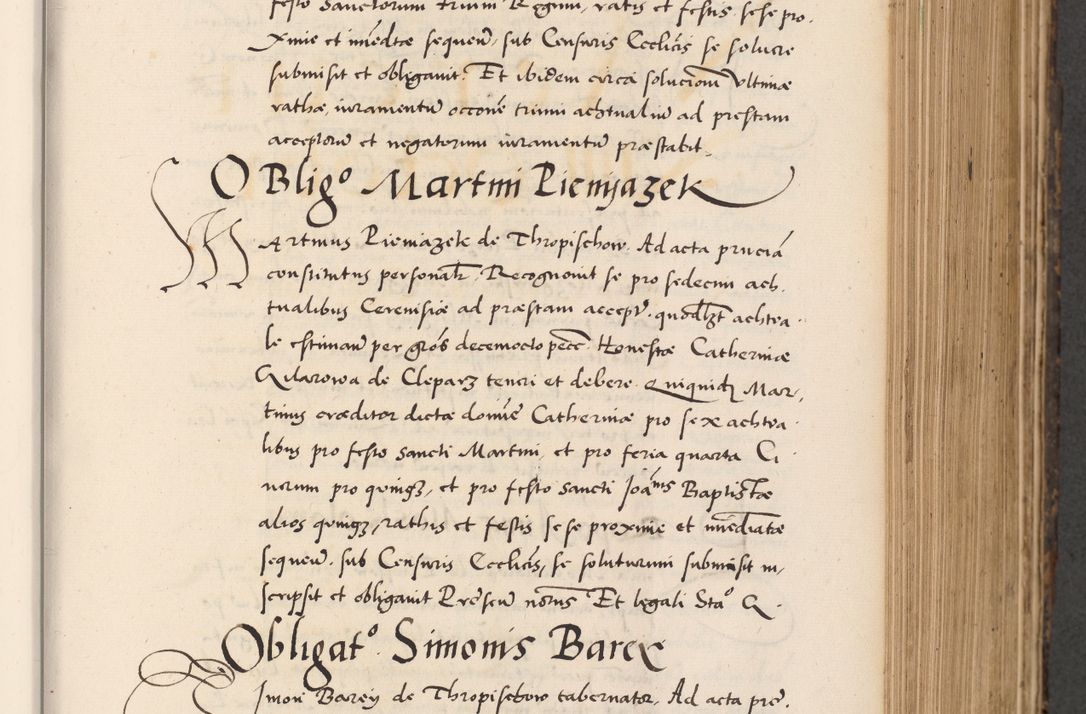 festo Sanctorum trium Regum, ratis et festis sese pro-
xime et im̄edtæ sequen̄, sub Censuris Ecclicis se solvere
submisit et obligavit. Et ibidem circa solucionē Ultimæ
rathæ, iuramentū occōne trium achtualiū ad prestam
acceptorū et negatorum iuramentū præstabit.
OBligº Martini Pieniyazek
Martinus Pieniazek de Thropischow. Ad acta pn̄ciā
constitutus personalr̄. Recognovit se pro sedecim ach-
tualibus Cerevisiæ ad præstam accept̄. quodlzt achtua-
le estimatū per gros decemocto pecc̄. Honestæ Catherinæ
de Cleparz teneri et debere Quiquid Mar-
tinus dictæ domine Catherinæ pro sex achtua-
libus pro festo Sancti Martini, et pro feria quarta Ci-
nerum pro quinqz, et pro festo Sancti Joānis Baptistæ
alios quinqz, rathis et festis sese proxime et im̄ediatæ
sequen̄. sub Censuris Ecclicis, se soluturum submisit in-
scripsit et obligavit Pn̄tibus Et legali Staº Q.
Obligatº. Simonis Barcz
Simon Barcy de Thropischow tabernator, Ad acta pn̄.